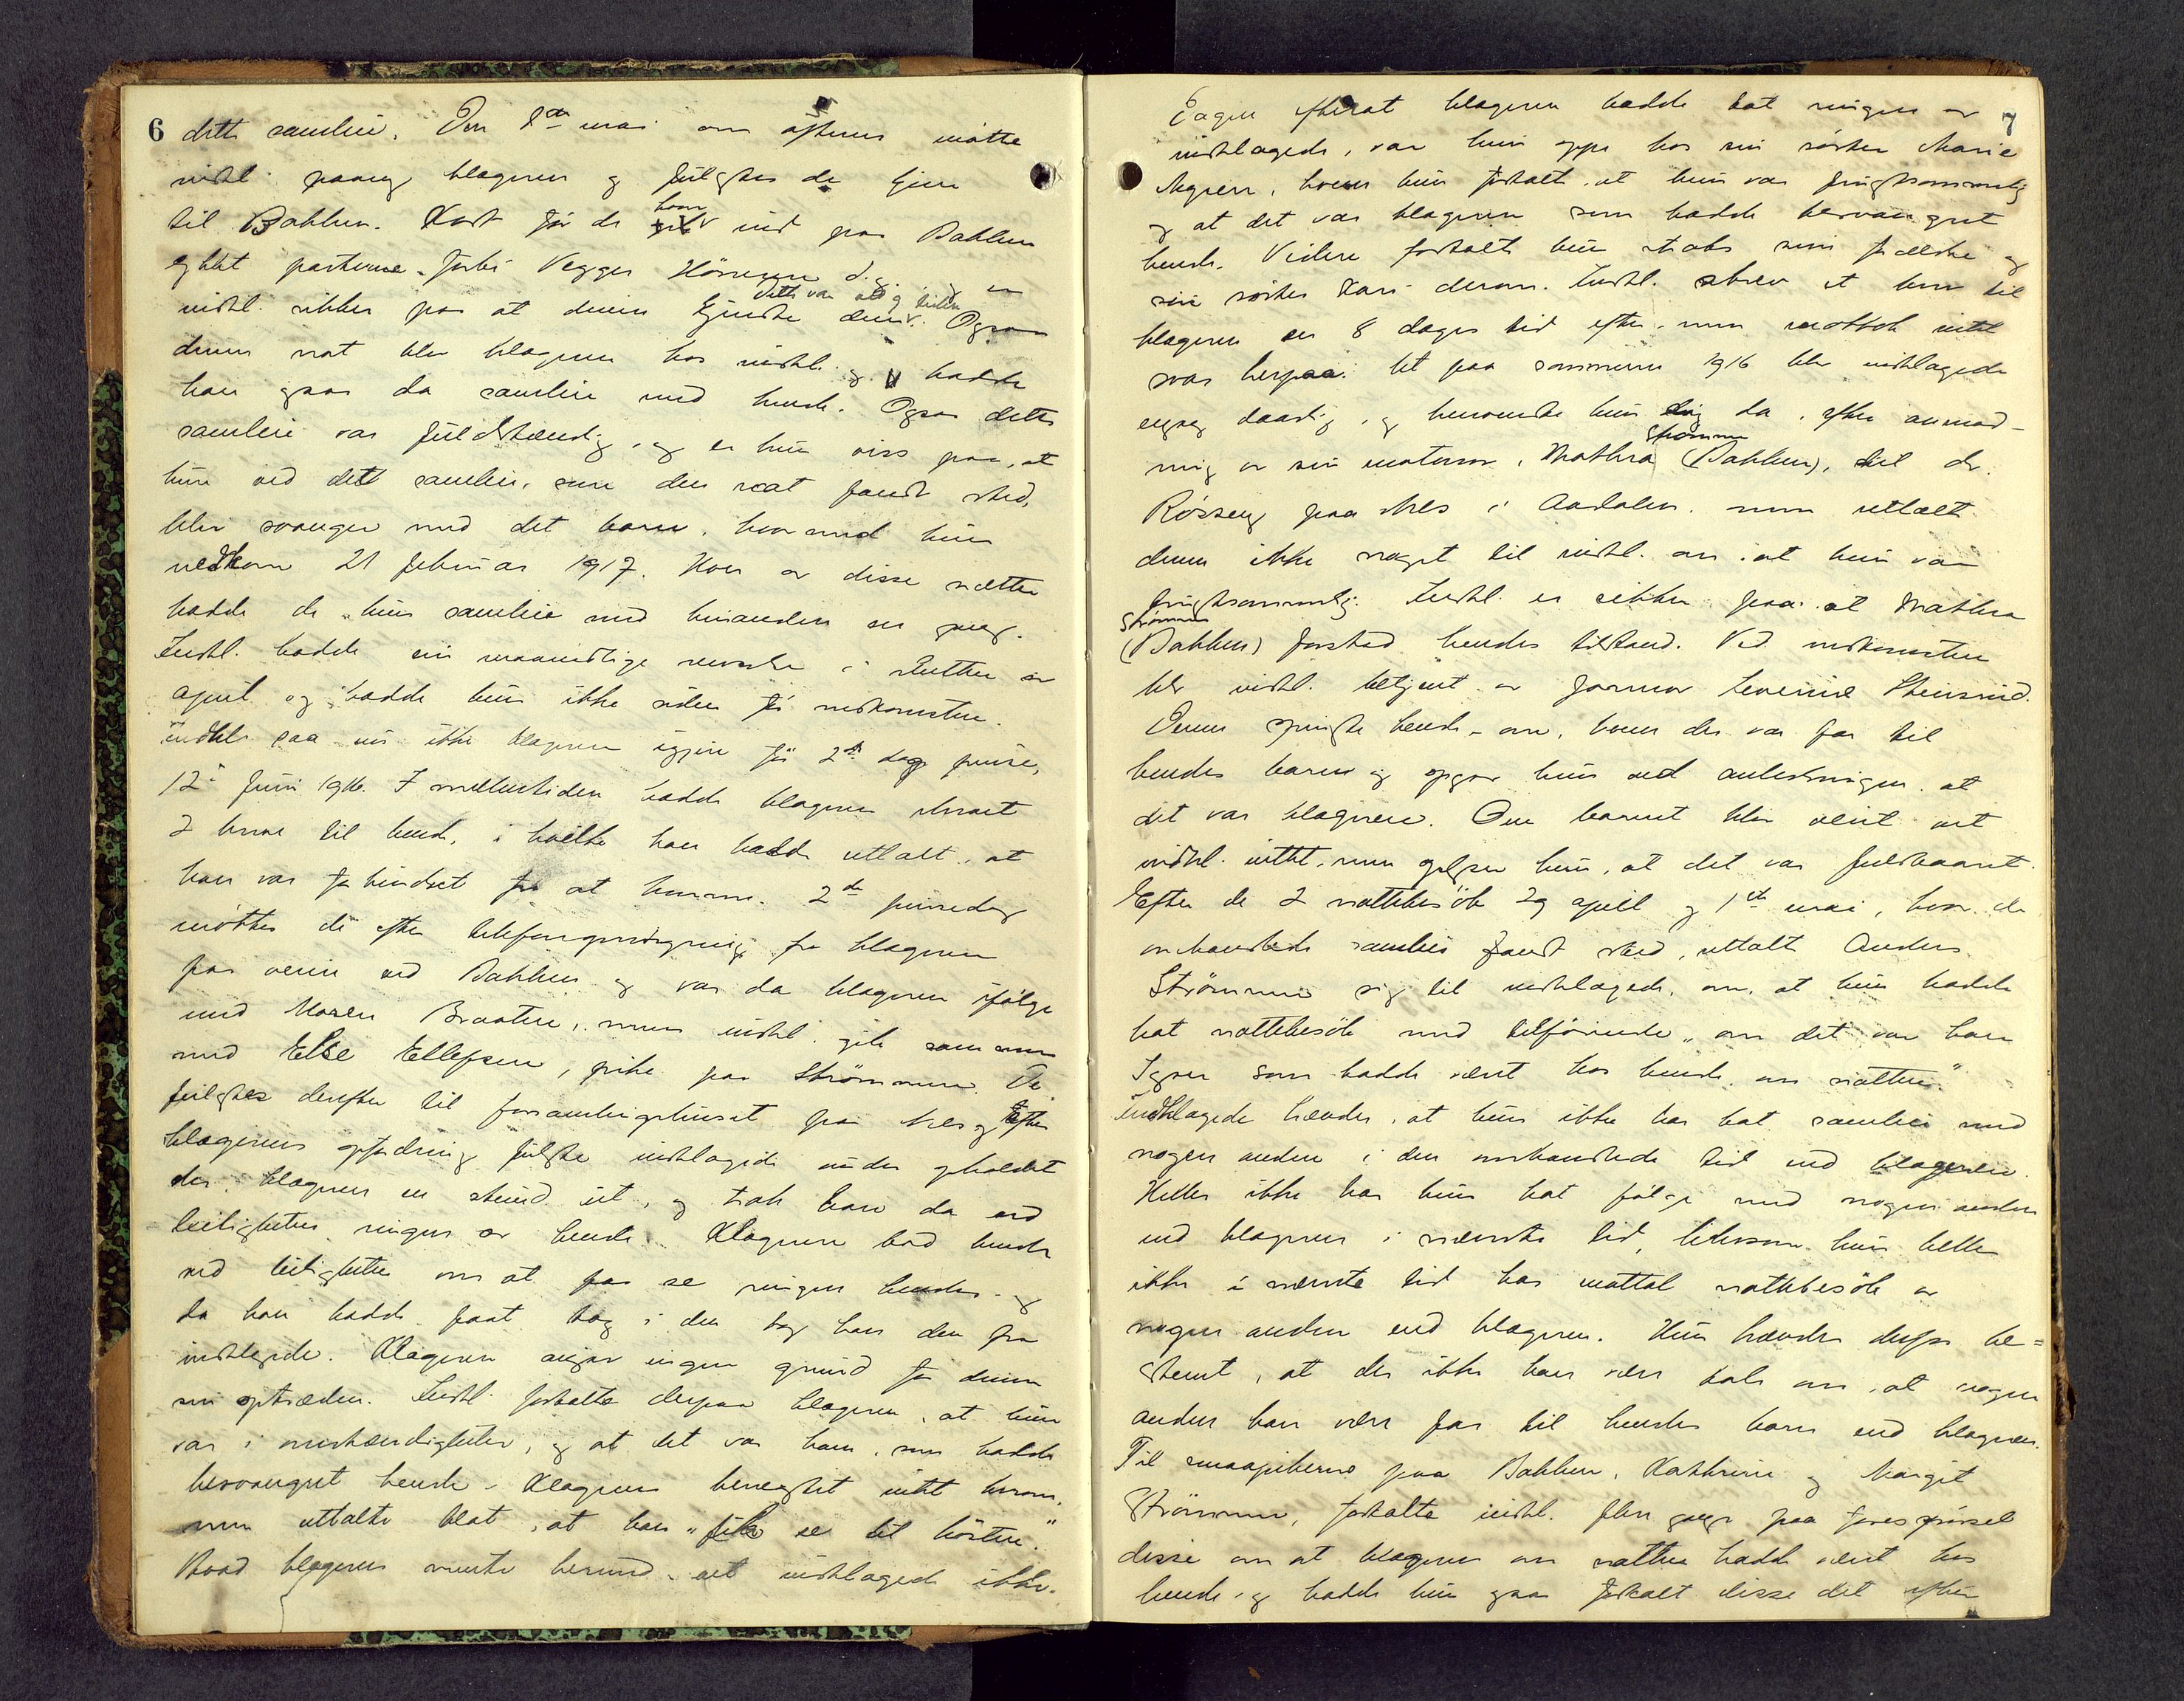 6 dette samleie. Den 1ste mai om aftenen møtte
indkl. paany klageren og fulgtes de hjem
til Bakken. Kort før de kom ind paa Bakken
gikk parterne forbi Vegger Høneren d.y. og er
indkl. sikker paa at denne kjendte dem. Ogsaa
dette var
denne nat blev klageren hos indkl. og hadde
han ogsaa da samleie med hende. Ogsaa dette
samleie var fuldstændig, og er hun viss paa, at
hun ved dette samleie, som den nat fandt sted,
blev svanger med det barn, hvormed hun
nedkom 21 februar 1917. Hver av disse nætter
hadde de kun samleie med hinanden en gang.
Indkl. hadde sin maanedlige renselse i slutten av
april og hadde hun ikke siden før nedkomsten.
Indkl. saa nu ikke klageren igjen før 2den dag pinse,
12te juni 1916. I mellemtiden hadde klageren skrevet
2 breve til hende, i hvilke han hadde uttalt, at
han var forhindret fra at komme. 2den pinsedag
møttes de efter telefonopringning fra klageren
paa veien ved Bakken og var da klageren ifølge
med Maren Braaten, mens indkl. gik sammen
med Else Ellefsen, pike paa Strømmen. De
fulgtes derefter til forsamlingshuset paa Nes og efter
klagerens opfordring fulgte indklagede under opholdet
der klageren en stund ut, og trak han da ved
leiligheten ringen av hende. Klageren bad hende
ved leiligheten om at faa se ringen hendes og
da han hadde faat tag i den tog han den fra
indklagede. Klageren angav ingen grund for denne
sin optræden. Indkl. fortalte derpaa klageren, at hun
var i omstændigheter, og at det var ham, som hadde
besvangret hende. Klageren benegtet intet herom,
men uttalte blot, at han "fik se til høsten."
Hvad klageren mente hermed vet indklagede ikke.
7
Dagen efterat klageren hadde tat ringen av
indklagede, var hun oppe hos sin søster Marie
Aggeren, hvem hun fortalte, at hun var frugtsommelig
og at det var klageren som hadde besvangret
hende. Videre fortalte hun straks sine forældre og
sin søster Kari derom. Indkl. skrev et brev til
klageren en 8 dages tid efter, men mottok intet
svar herpaa. Ut paa sommeren 1916 blev indklagede
engang daarlig, og henvendte hun sig da, efter anmod-
ning av sin matmor, Mathea Strømmen (Bakken), til dr.
Røsseng paa Nes i Aadalen, men uttalte
denne ikke noget til indkl. om at hun var
frugtsommelig. Indkl. er sikker paa at Mathea
Strømmen
(Bakken) forstod hendes tilstand. Ved nedkomsten
blev indkl. betjent av jormor Severine Stensrud.
Denne spurgte hende om, hvem der var far til
hendes barn og opgav hun ved anledningen at
det var klageren. Om barnet blev veiet vet
indkl. intet, men oplyser hun, at det var fuldbaarent.
Efter de 2 nattebesøk 29 april og 1ste mai, hvor de
omhandlede samleier fandt sted, uttalte Anders
Strømmen sig til indklagede, om at hun hadde
hat nattebesøk med tilføiende "om det var han
Iver som hadde været hos hende om natten."
Indklagede hævder, at hun ikke har hat samleie med
nogen anden i den omhandlede tid end klageren.
Heller ikke har hun hat følge med nogen anden
end klageren i nævnte tid, likesom hun heller
ikke i nævnte tid har mottat nattebesøk av
nogen anden end klageren. Hun hævder derfor be=
stemt, at der ikke kan være tale om, at nogen
anden kan være far til hendes barn end klageren.
Til smaapikerne paa Bakken, Kathrine og Margit
Strømmen, fortalte indkl. flere gange paa forespørsel
disse om at klageren om natten hadde været hos
hende og hadde hun ogsaa fortalt disse det efter